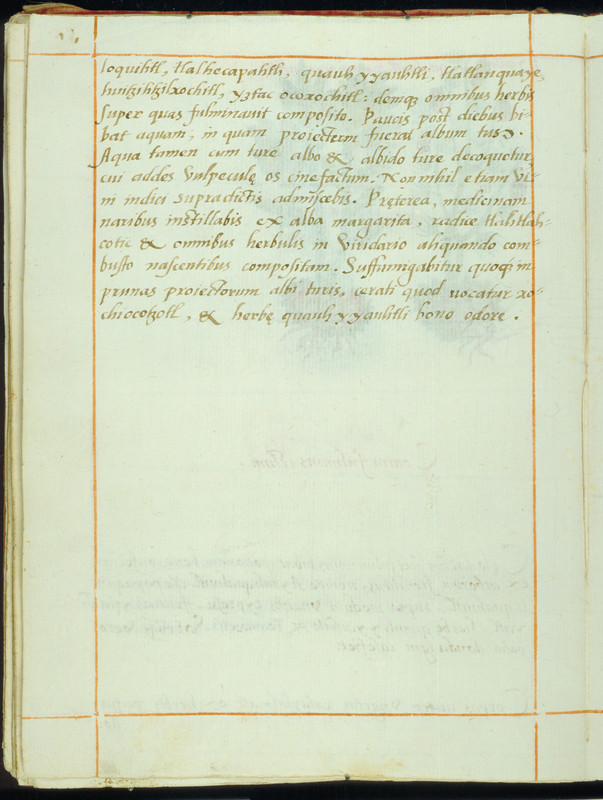 loquihtl, tlalhecapahtli, quauh yyauhtli, tlatlanquaye,
huitzihtzilxochitl, yztac ocoxochitl: demq̃ omnibus herbis
super quas fulminauit composito. Paucis post diebus bi-
bat aquam, in quam proiectum fuerat album tus.
Aqua tamen cum ture albo & albido ture decoquetur,
cui addes vulpeculę os cinefactum. Nonnihil etiam vi-
ni indici supradictis admiscebis. Pręterea, medicinam
naribus instillabis ex alba margarita, radice tlatlah-
cotic & omnibus herbulis in viridario aliquando com-
busto nascentibus compositam. Suffumigabitur quoq; in
prunas proiectorum albi turis, cerati quod uocatur xo-
chiocotzotl, & herbę quauh yyauhtli bono odore.